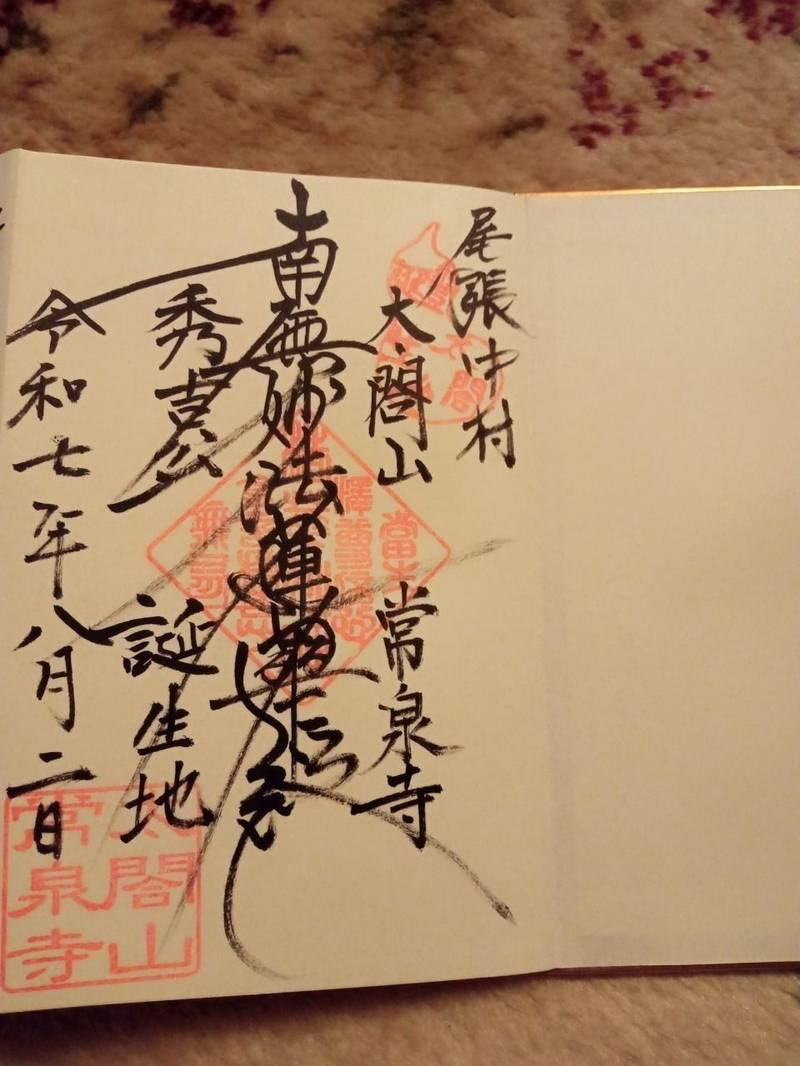 尾張中村
太閤山 常泉寺
南無妙法蓮華経
秀吉公 誕生地
令和七年八月二日
太閤山
常泉寺